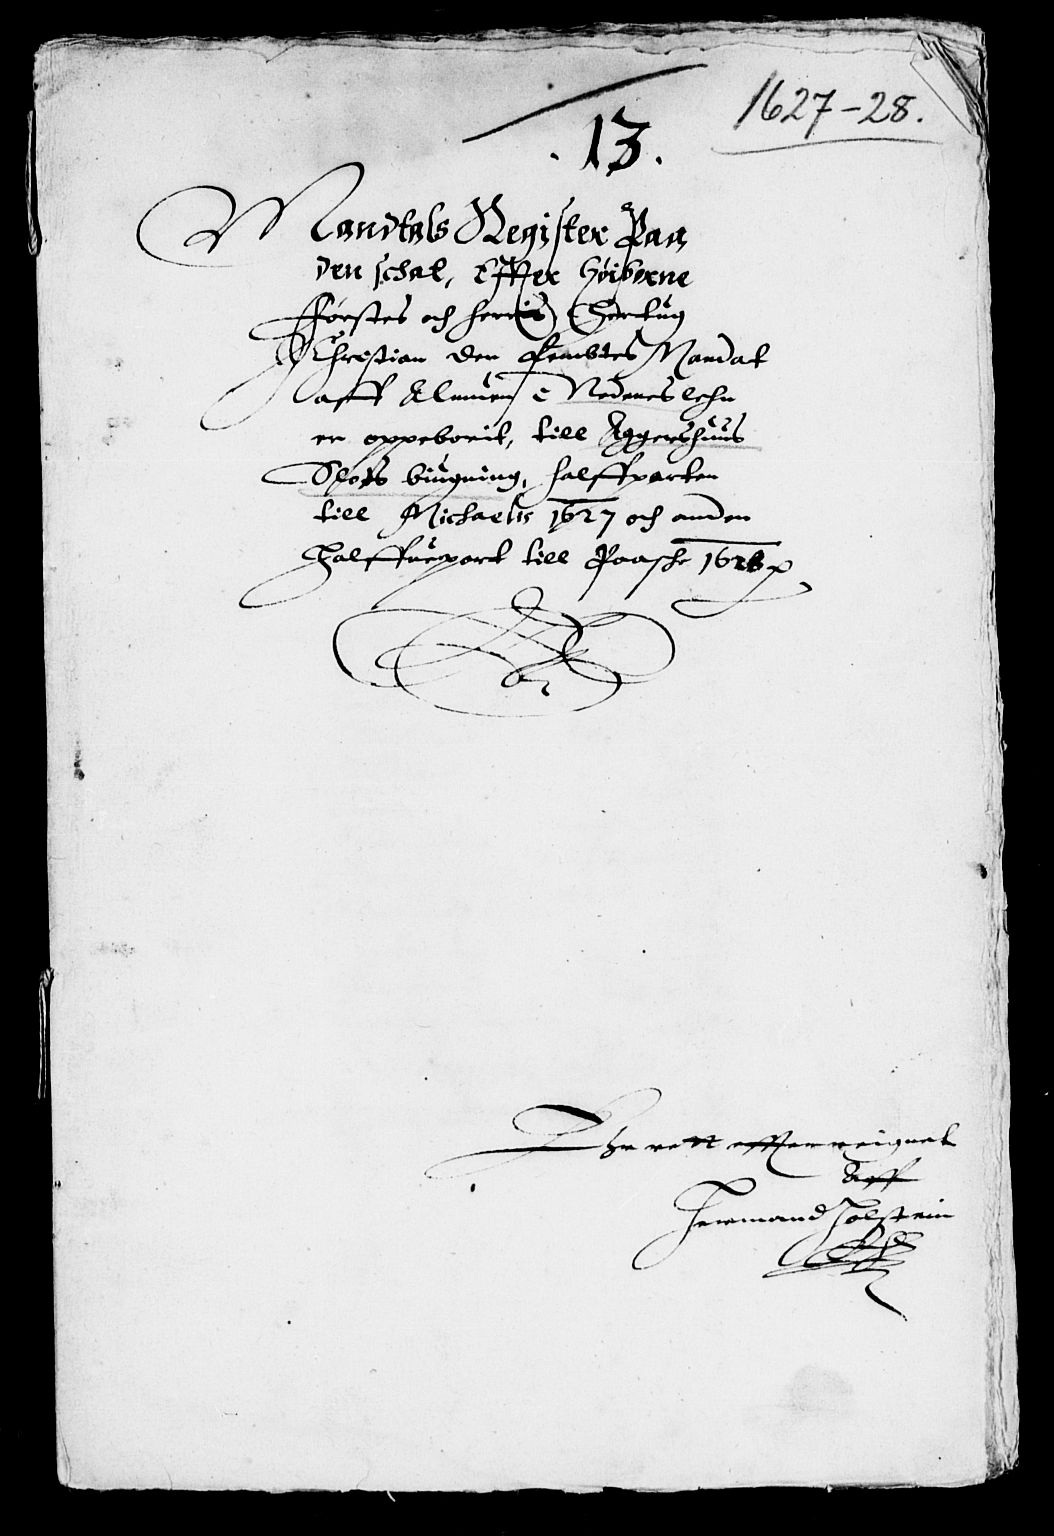 1627-28.
. 13.
Mandtals Register Paa
den schat, Effter Høiborne
fførstes och herris Hertug
Christian den fembtes Mandat
aff Almuen i Nedenes lehn
er oppeborit, till Aggershuus
Slots bÿugning, halffparten
till Michaelis 1627 och anden
halffue part till Paasche 1628
effterreignet
Aff
Hermand Holstein